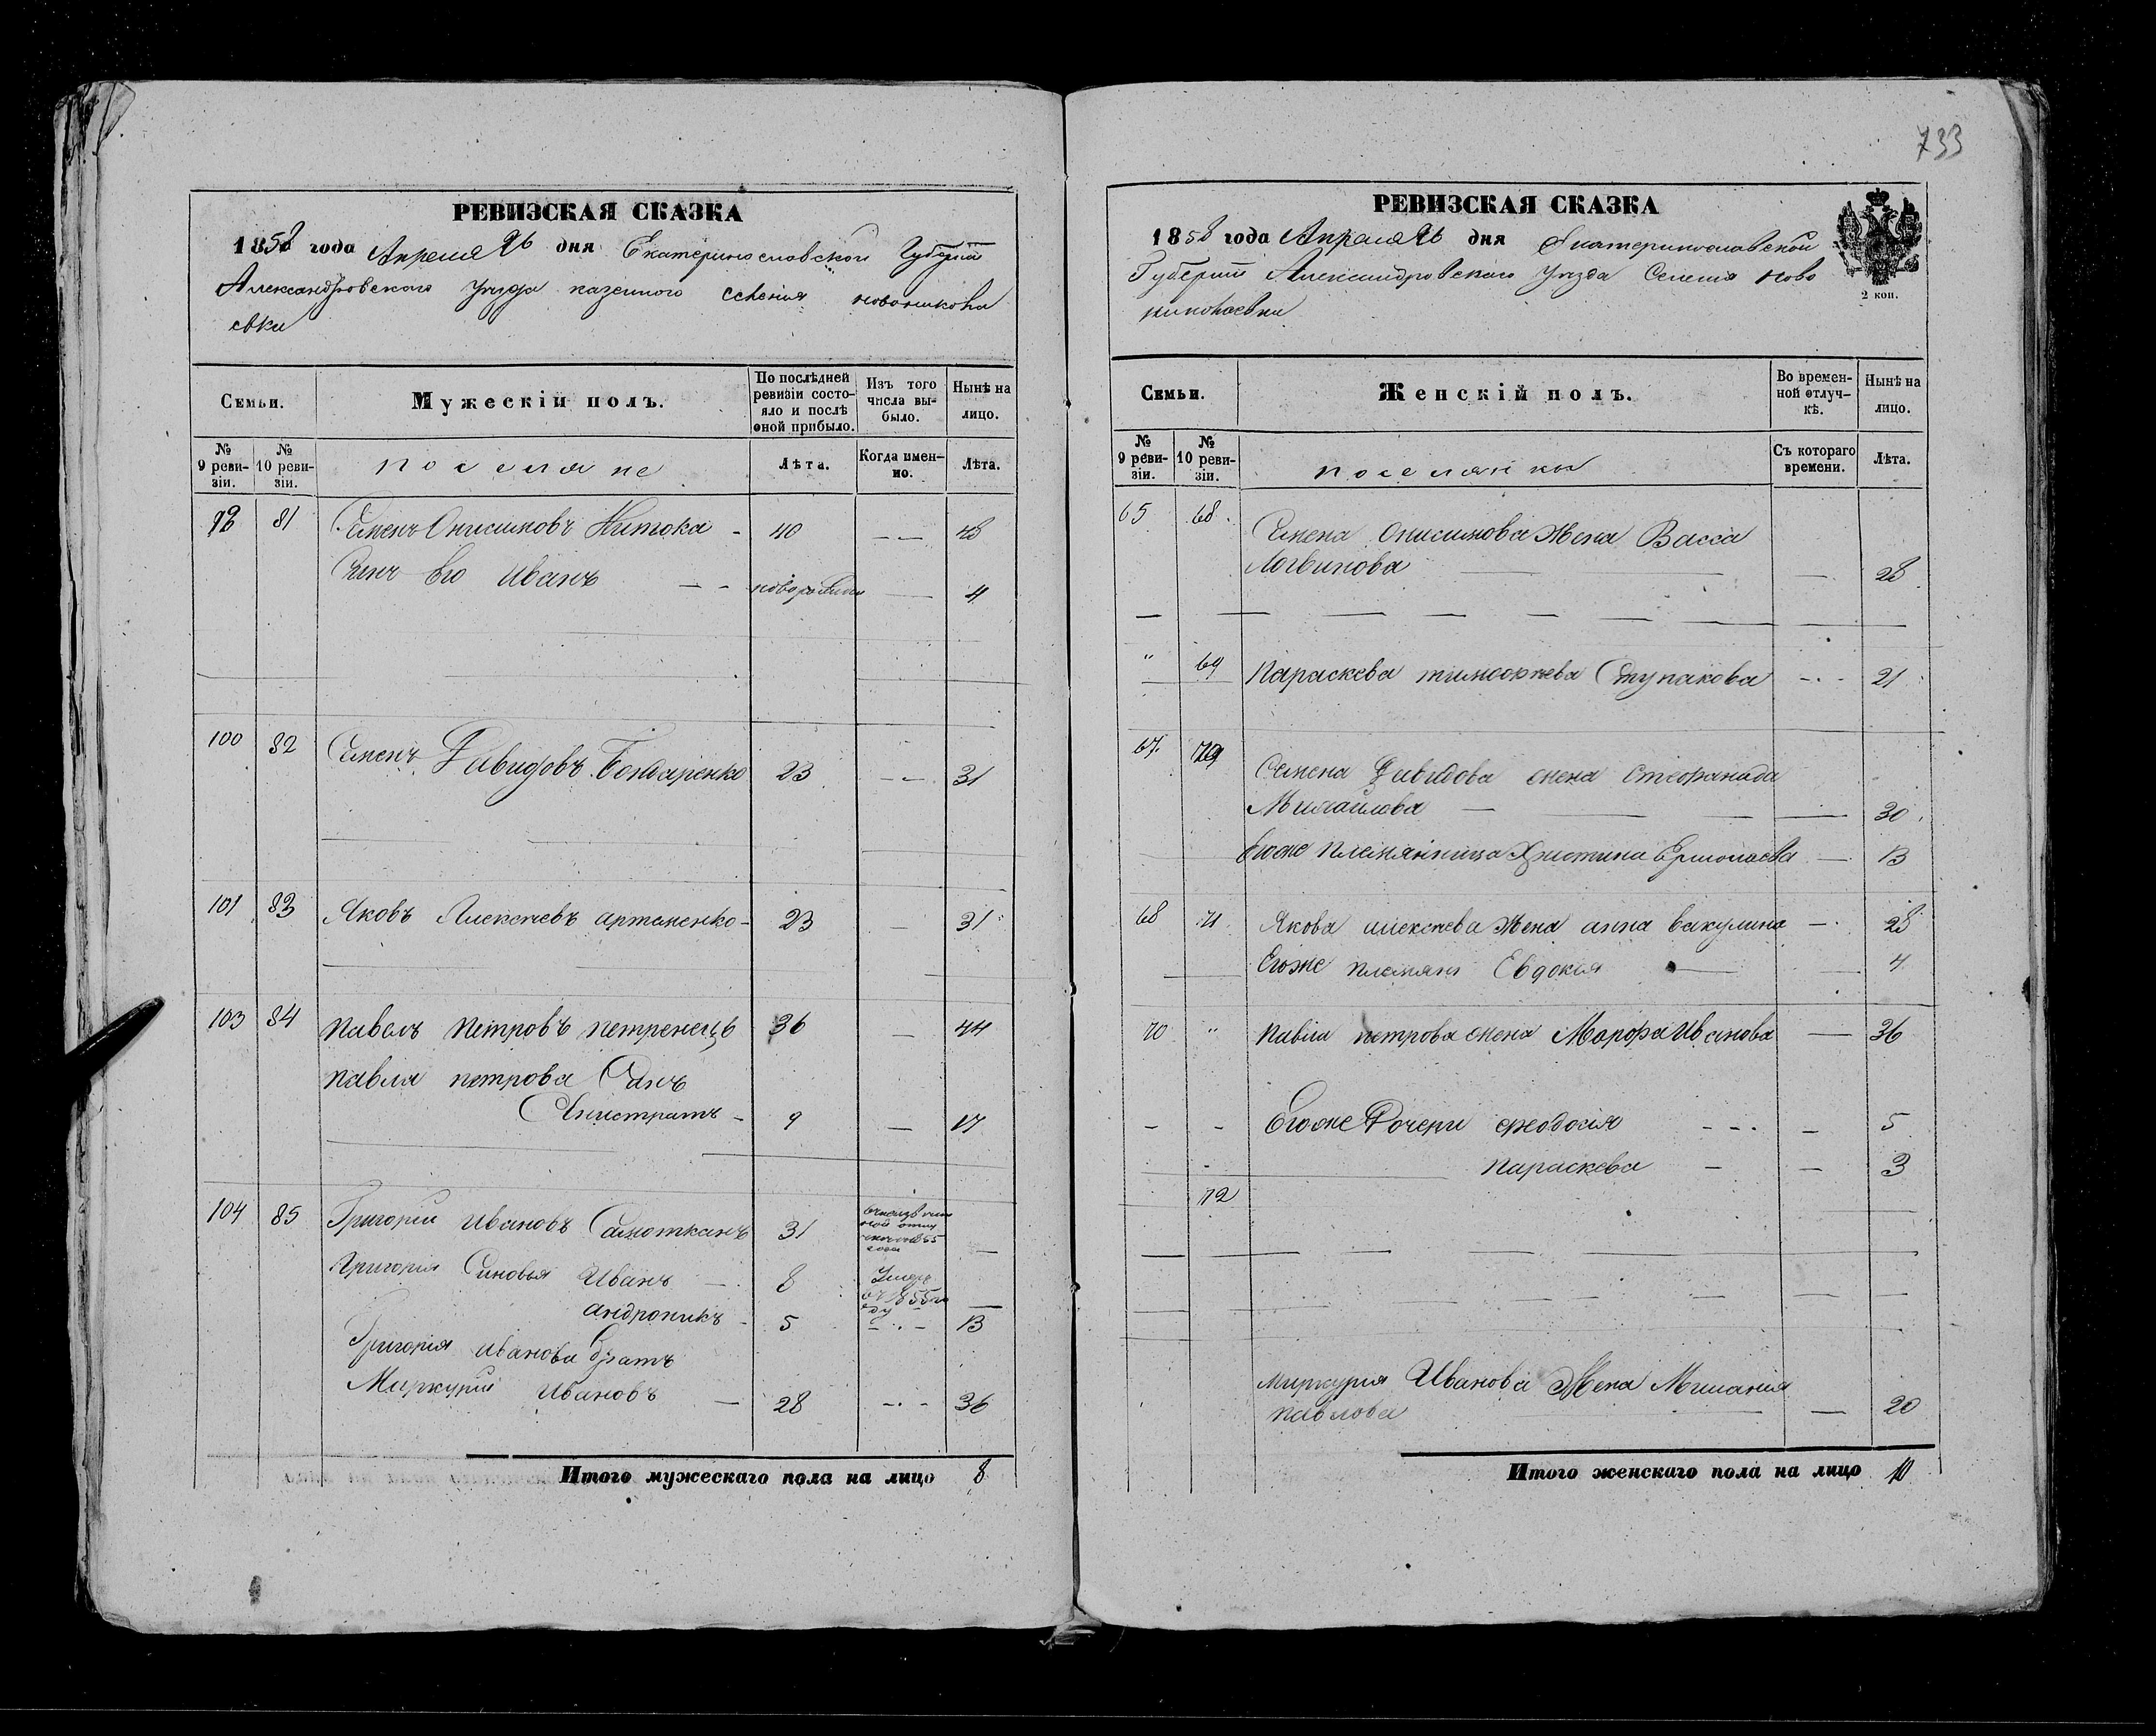 733
РЕВИЗСКАЯ СКАЗКА
1858 года Апреля 26 дня Екатеринославской Губерніи
Александровского Уезда казенного селения новониkола
евки
Семьи.
Мужескій полъ.
По послѣдней ревизіи состояло и послѣ оной прибыло.
Изъ того числа выбыло.
Нынѣ на лицо.
№ 9 ревизіи.
№ 10 ревизіи.
поселяне
Лѣта.
Когда именно.
Лѣта.
81 Семенъ Онисимовъ 40 — — 48
Сынъ Его Иванъ — — — 4
100 82 Семенъ Давидовъ Бондаренко 23 — — 31
101 83 Яковъ Алексѣевъ артеменко - 23 — 31
103 84 павелъ петровъ петренецъ 36 — 44
павла петрова Сынъ
- 9 — 17
104 85 Григорій Ивановъ 31 —
Григорія Синовья Иванъ — 8 Умеръ въ 1855 году —
андроникъ - 5 - . - 13
Григорія иванова братъ
Меркурій Ивановъ — 28 - . - 36
Итого мужескаго пола на лицо 8
РЕВИЗСКАЯ СКАЗКА
1858 года Апреля 26 дня Екатеринославской
Губерніи Александровского Уезда Селения Ново
николаевки
2 коп.
Семьи.
Женскій полъ.
Во временной отлучкѣ.
Нынѣ на лицо.
№ 9 ревизіи.
№ 10 ревизіи.
поселянки
Съ котораго времени.
Лѣта.
65 68 Семена Онисимова Жена Васса
Логвинова — — 28
" 69 Параскева тимофѣева Ступакова - . - 21
67 Семена Давидова жена Стефанида
Михайлова — — 30
Егоже племянница Христина Ермолаева — 13
68 71 Якова алексѣева Жена анна вакулина — 28
Егоже племян Евдокия — 4
70 " павла петрова жена Марфа Иванова — 36
- - Егоже Дочери феодосія - - - — 5
параскева — — 3
72
меркурия Иванова Жена Мелания
павлова — 20
Итого женскаго пола на лицо 10